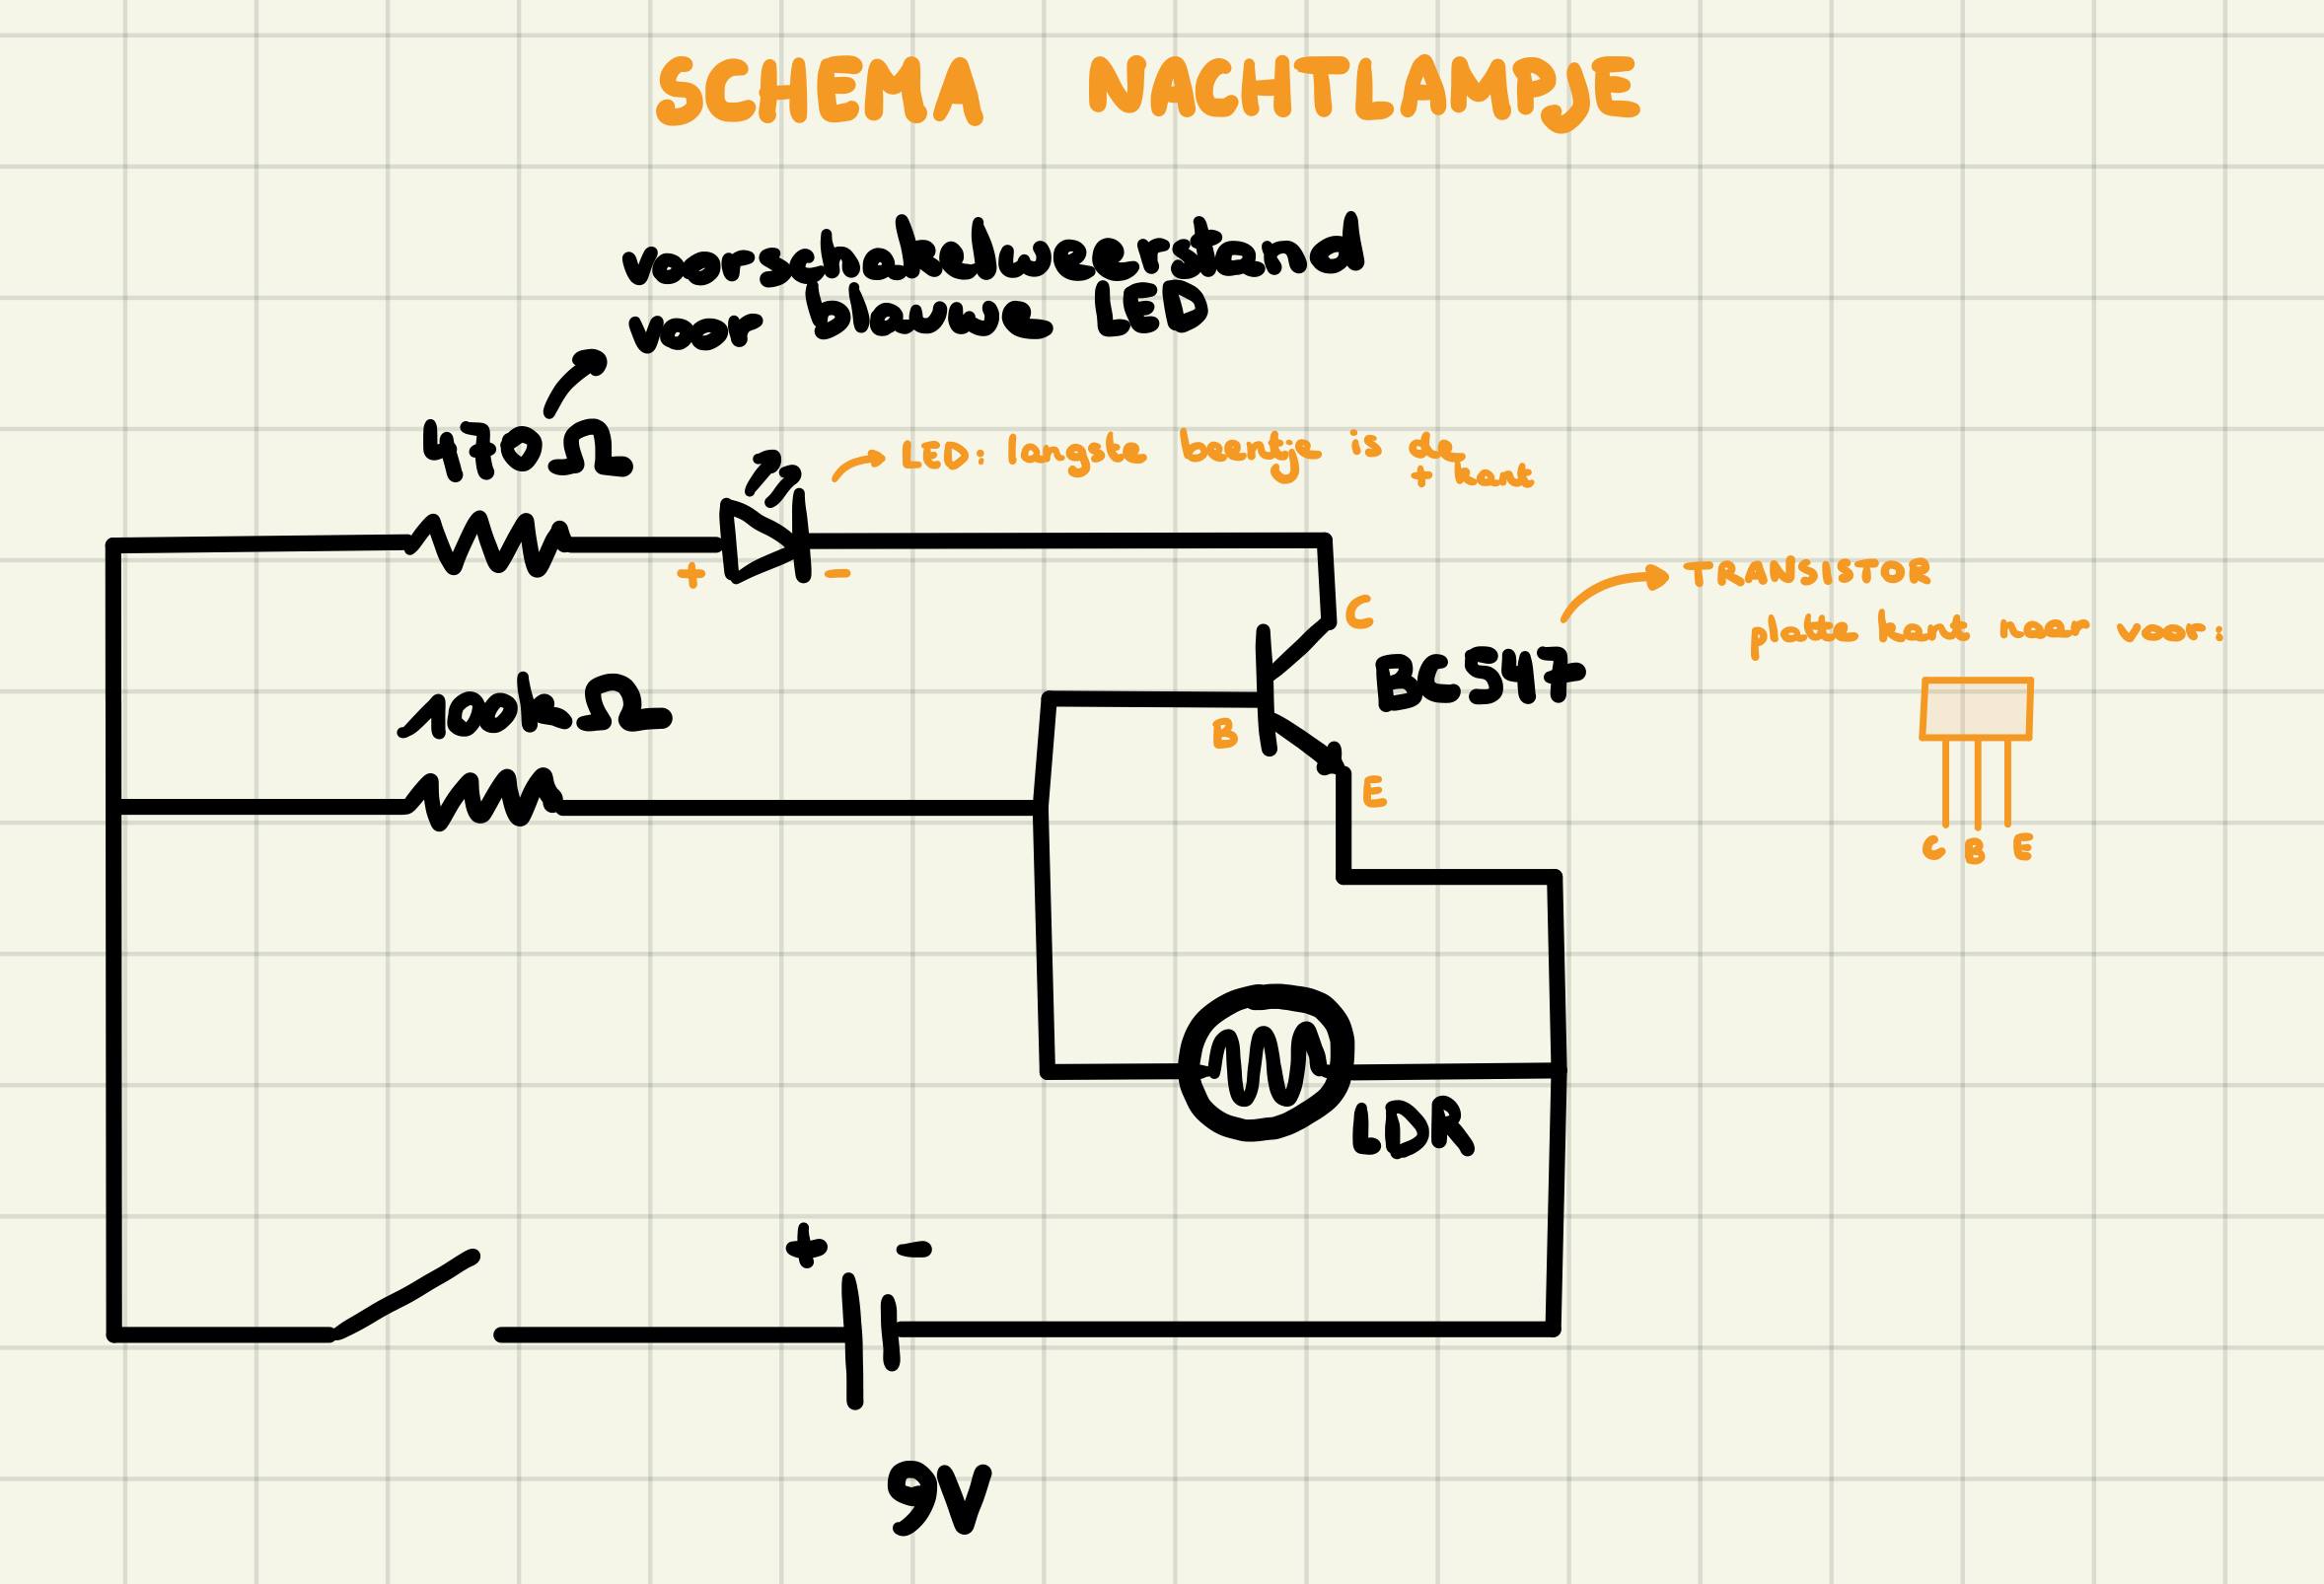 SCHEMA NACHTLAMPJE
voorschakelweerstand
voor blauwe LED
470Ω
LED: langste beentje is de
+ kant
+ -
C
TRANSISTOR
platte kant naar voor:
BC547
B
100kΩ
E
C B E
LDR
+ -
9V